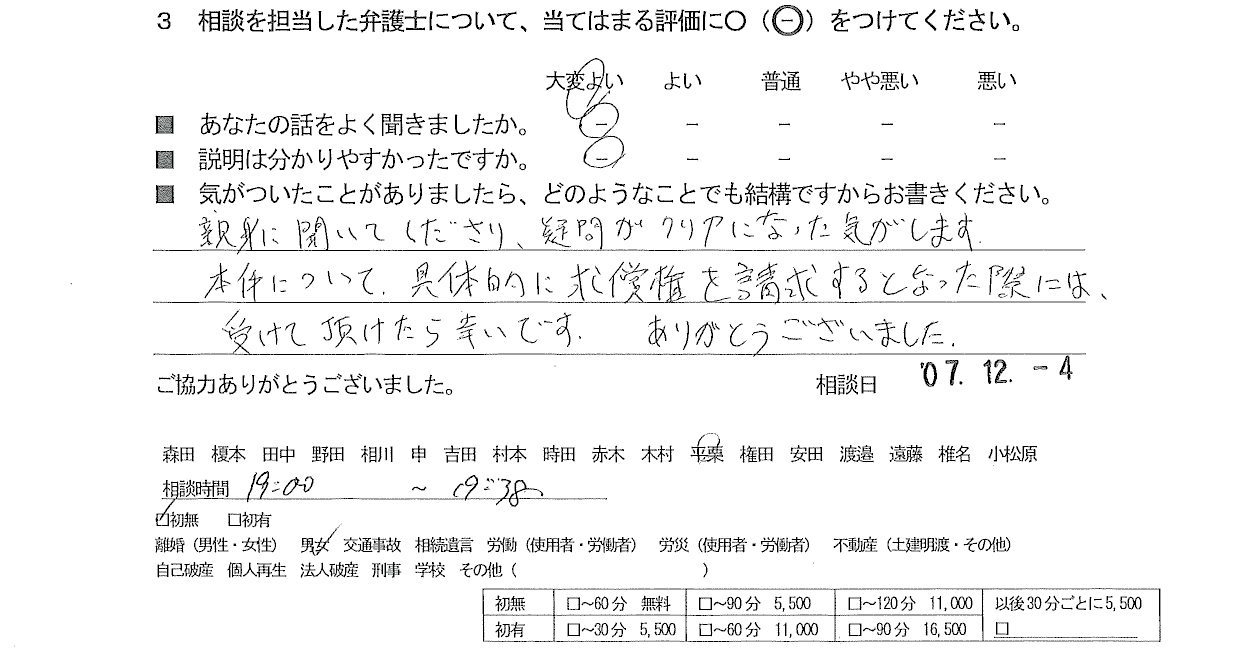 3 相談を担当した弁護士について、当てはまる評価に○（㊀）をつけてください。
大変よい よい 普通 やや悪い 悪い
■ あなたの話をよく聞きましたか。 － － － － －
■ 説明は分かりやすかったですか。 － － － － －
■ 気がついたことがありましたら、どのようなことでも結構ですからお書きください。
親身に聞いてくださり、疑問がクリアになった気がします。
本件について、具体的に求償権を請求するとなった際には、
受けて頂けたら幸いです。 ありがとうございました。
ご協力ありがとうございました。 相談日 '07. 12. -4
森田 榎本 田中 野田 相川 申 吉田 村本 時田 赤木 木村 平栗 権田 安田 渡邉 遠藤 椎名 小松原
相談時間 19:00 ～ 19:38
□初無 □初有
離婚（男性・女性） 男女 交通事故 相続遺言 労働（使用者・労働者） 労災（使用者・労働者） 不動産（土建明渡・その他）
自己破産 個人再生 法人破産 刑事 学校 その他（ ）
初無 □～60分 無料 □～90分 5,500 □～120分 11,000 以後30分ごとに5,500
初有 □～30分 5,500 □～60分 11,000 □～90分 16,500 □